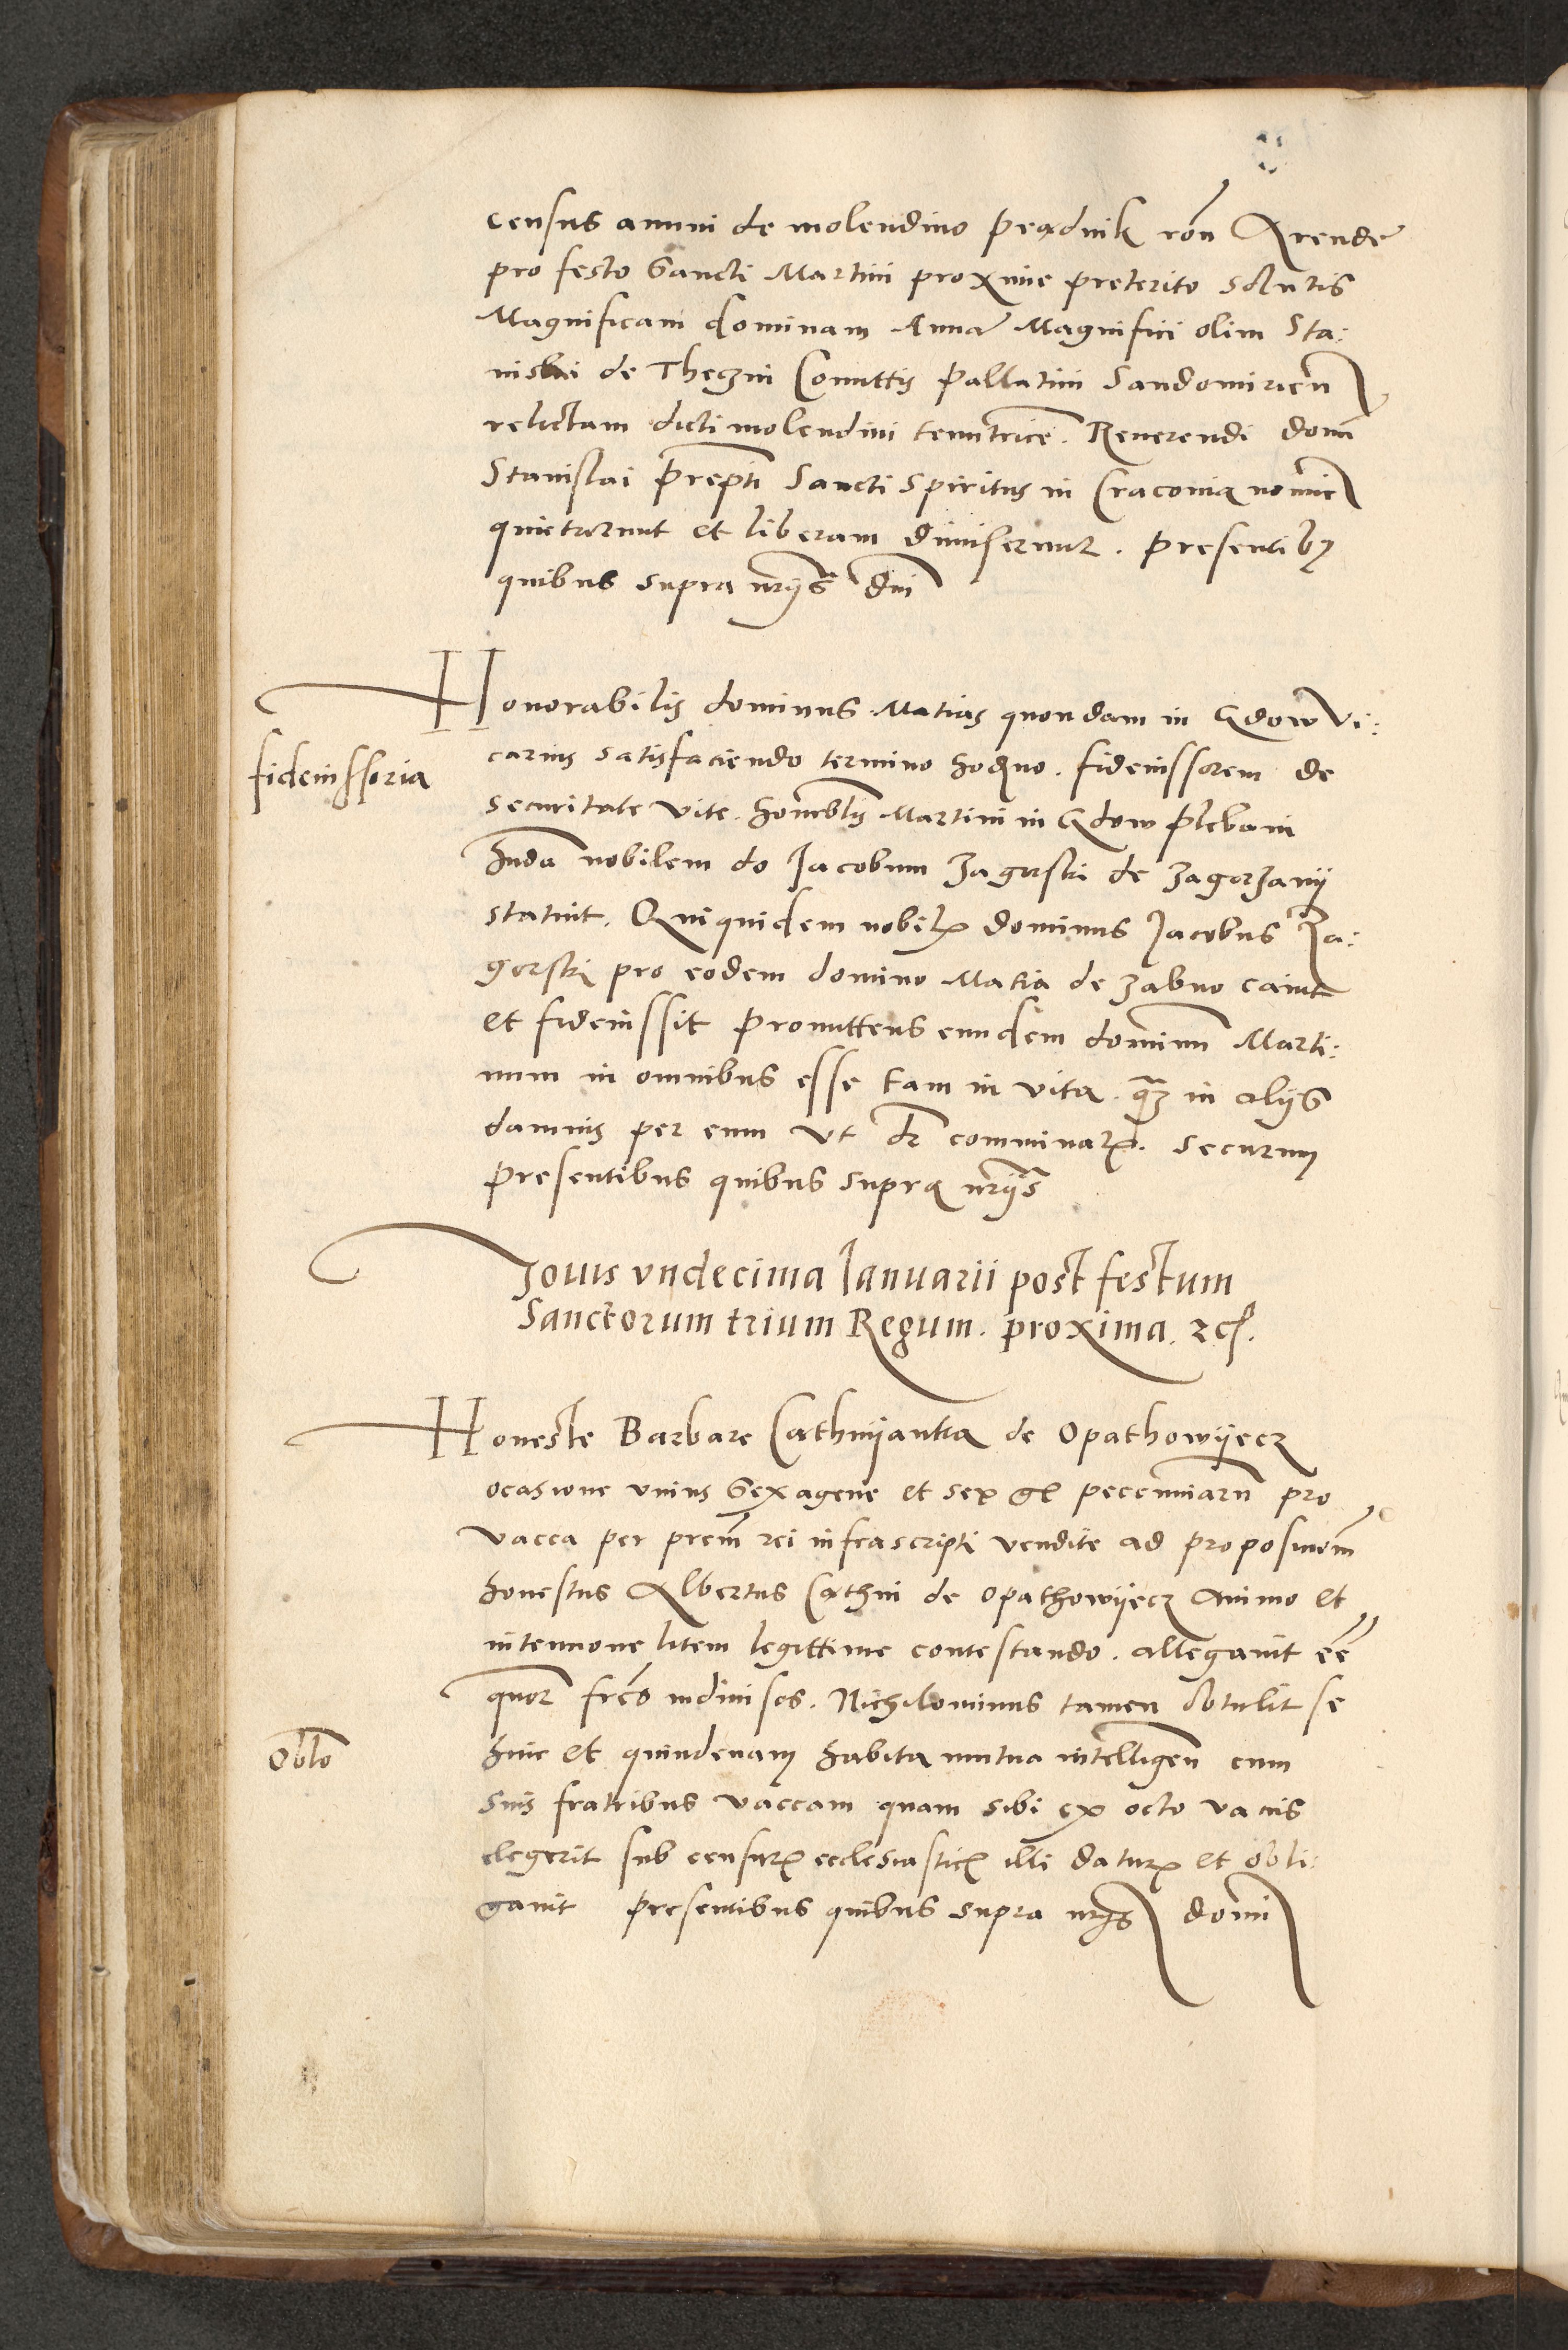 census annui de molendino Prądnik rōn Arende
pro festo Sancti Martini proxime preterito solutis
Magnificam dominam Annā Magnifici olim Sta:
nislai de Theczin Comittis Pallatini Sandomirien̄
relictam dicti molendini tenutricē. Reverendi domi
Stanislai Prep̄ti Sancti Spiritus in Craconia nomie
quietarunt et liberam dimiserunt. presentibꝫ
quibus supra nr̄ijs dni
Honorabilis dominus Matias quondam in Gdow vi:
fideiussoria
carius satisfaciendo termino hoḍno. fideiussorem de
securitate vite. honorab̄lis Martini in Gdow plebani
nobilem do Jacobum Zagorski de Zagorzany
statuit. Qui quidem nobilꝭ dominus Jacobus Za:
gorski pro eodem domino Matia de Zabno cavit
et fideiussit promittens eundem dominū Marti:
num in omnibus esse tam in vita. qꝫ in alijs
damnis per eum ut dr̄ comminatꝭ. securum
presentibus quibus supra nr̄ijs
Jovis undecima Januarii post festum
Sanctorum trium Regum. proxima. ⁊c̃.
Honeste Barbare Cathnijantka de Opathowijecz
ocasione unius sexagene et sex gꝭ pecunniarū pro
vacca per prem̄ rei infrascripti vendite ad propositiom̄
honestus Albertus Cathni de Opathowijecz animo et
intentione litem legittime contestando. allegavit eē̄
quor fr̄es indivisos. Nichilominus tamen obtulit se
Oblo
hinc et quindenam habita mutua intelligen̄ cum
suis fratribus vaccam quam sibi ex octo vaccis
elegerit sub censurꝭ ecclesiasticꝭ illi daturꝭ et obli:
gavit presentibus quibus supra nr̄ijs domi